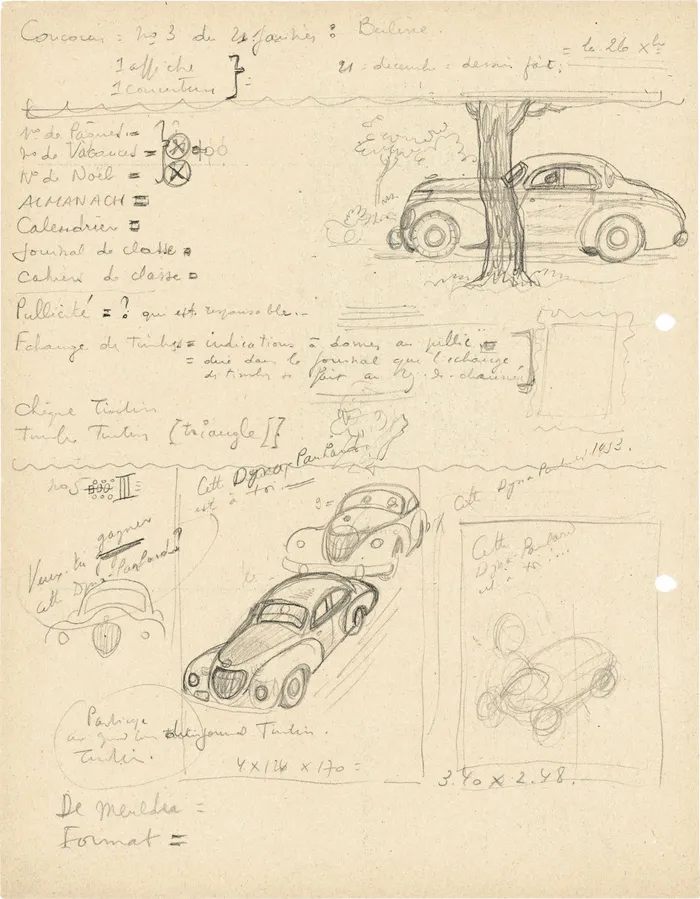 Concours : No 3 du 21 Janvier :
= le 26 Xbre
1 affiche
1 couverture
21 decembre = dessin fait.
No de Pâques =
No de Vacances =
No de Noël =
ALMANACH =
Calendrier =
Journal de classe =
Cahiers de classe =
Publicité = ? qui est responsable
Echange de timbres = indications à donner au public =
= dire dans le journal que l'échange
de timbres se fait au
Chèque Tintin
Timbre Tintin [triangle]
no 5
Veux-tu gagner
cette Dyna-Panhard ?
Cette Dyna Panhard
est à toi
Cette Dyna Panhard 1953.
Cette
Dyna-Panhard
est à toi ....
Participe
au
Tintin.
journal Tintin.
4 x 126 x 170 =
3.40 x 2.48.
De Merldea =
Format =